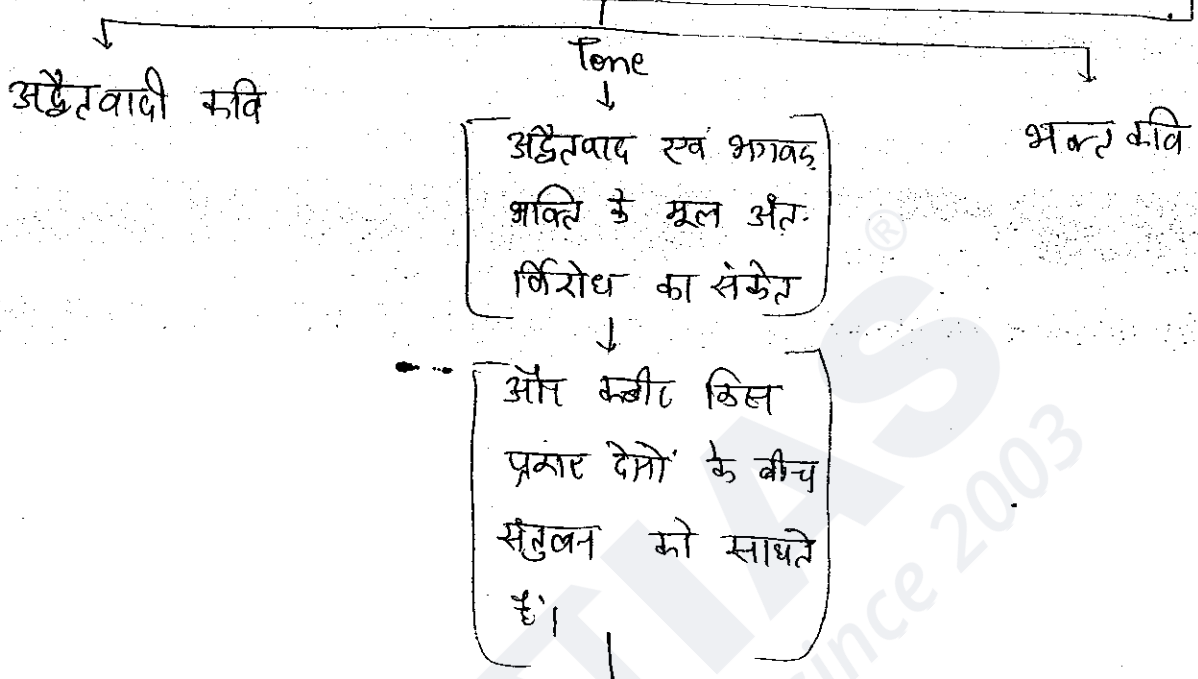 Tone
अद्वैतवादी कवि
भक्त कवि
अद्वैतवाद एवं भगवद्
भक्ति के मूल अंत-
र्विरोध का संकेत
और कबीर किस
प्रकार दोनों के बीच
संतुलन को साधते
हैं।
®
IAS
ince 2003